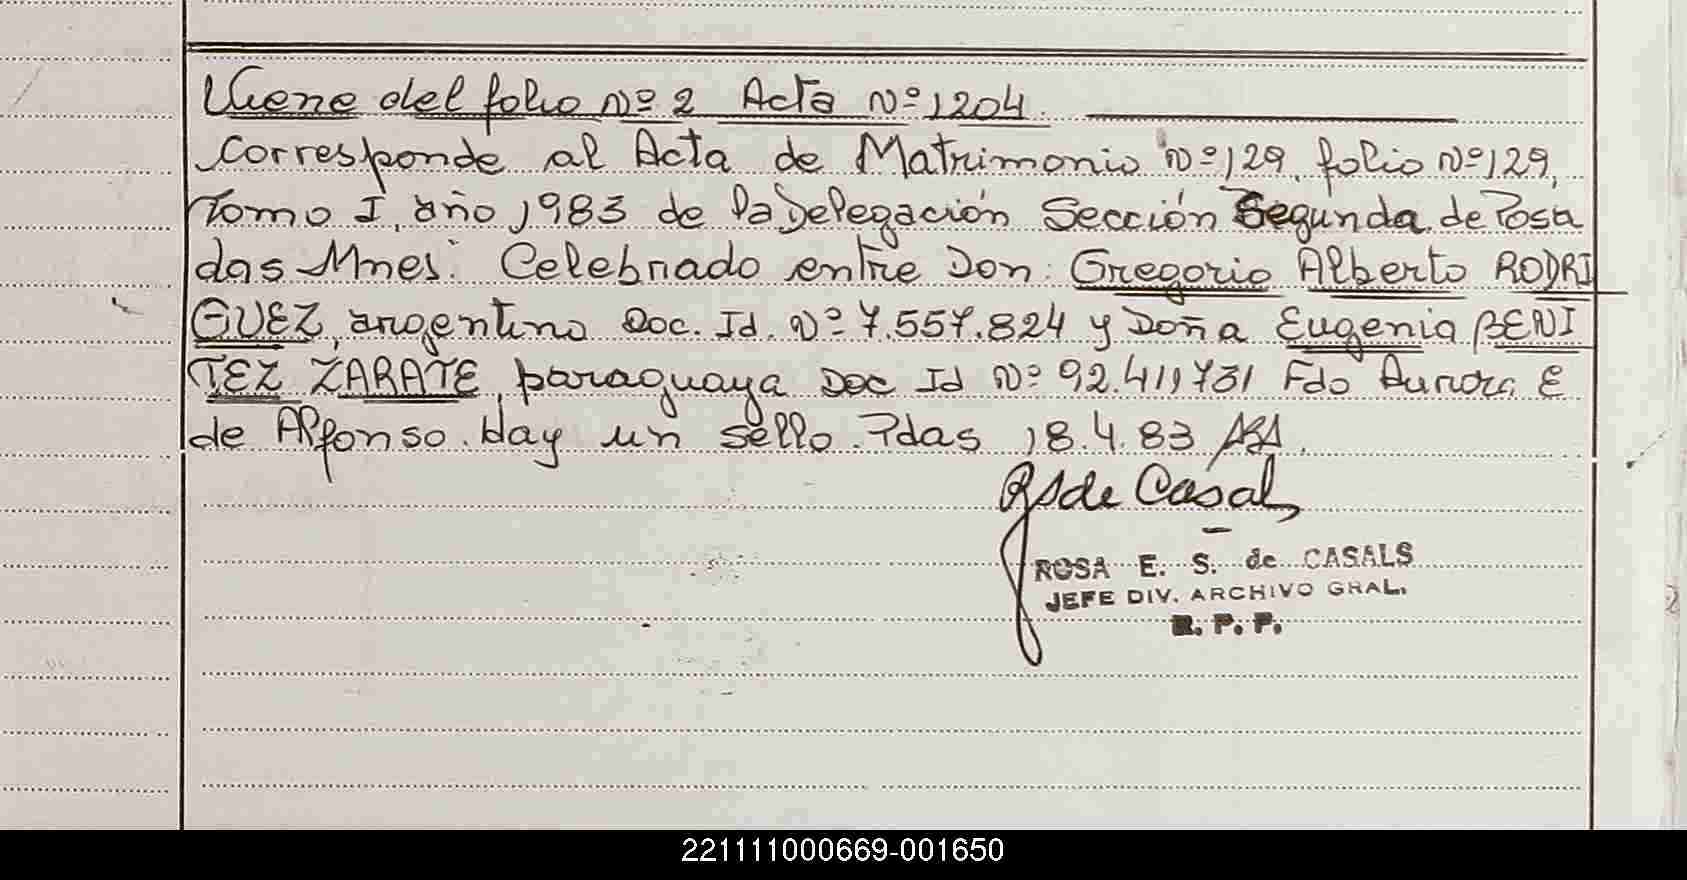 Viene del folio Nº 2 Acta Nº 1204.
Corresponde al Acta de Matrimonio Nº 129, folio Nº 129,
Tomo I, año 1983 de la Delegación Sección Segunda de Posa
das Mnes. Celebrado entre Don: Gregorio Alberto RODRI
GUEZ, argentino Doc. Id. Nº 7.557.824 y Doña Eugenia BENI
TEZ ZARATE, paraguaya Doc Id Nº 92.411731 Fdo Aurora E
de Alfonso. Hay un sello. Pdas 18.4.83
RS de Casals
ROSA E. S. de CASALS
JEFE DIV. ARCHIVO GRAL.
R. P. P.
221111000669-001650